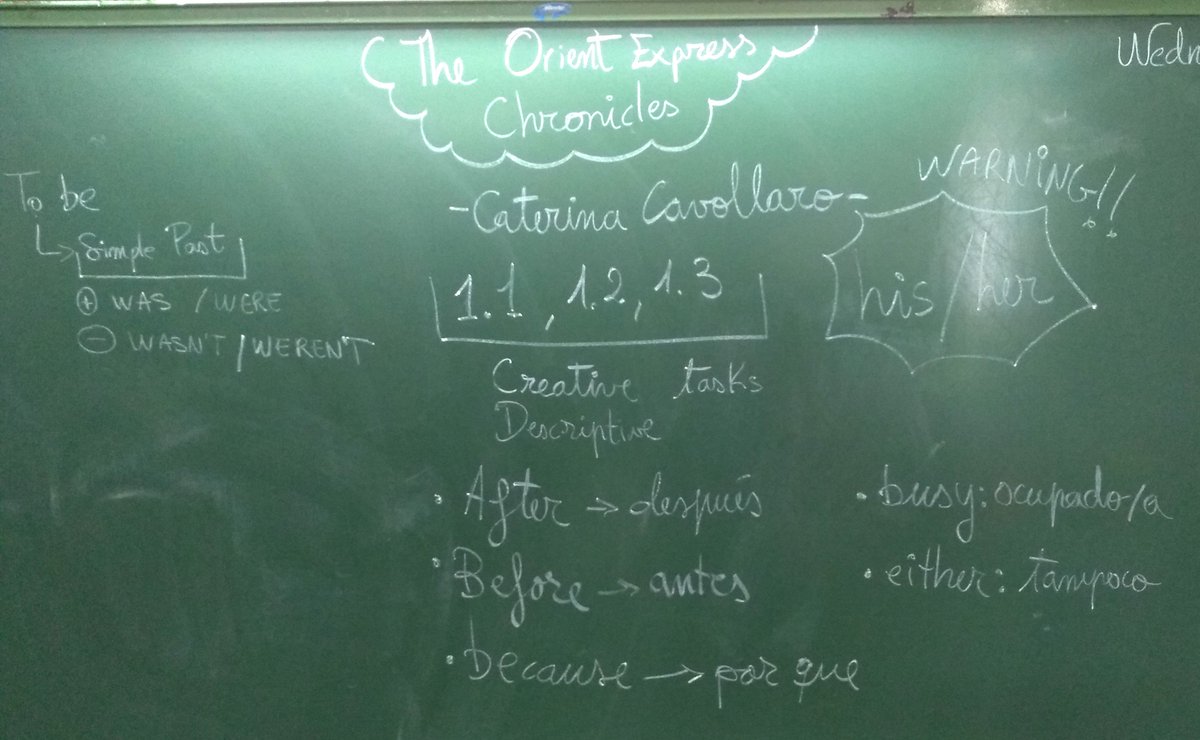 The Orient Express
Chronicles
Wedn
- Caterina Cavollaro -
WARNING!!
his/her
To be
↳ Simple Past
⊕ WAS / WERE
⊖ WASN'T / WEREN'T
1.1, 1.2, 1.3
Creative tasks
Descriptive
• After → después
• Before → antes
• because → por que
• busy: ocupado/a
• either: tampoco